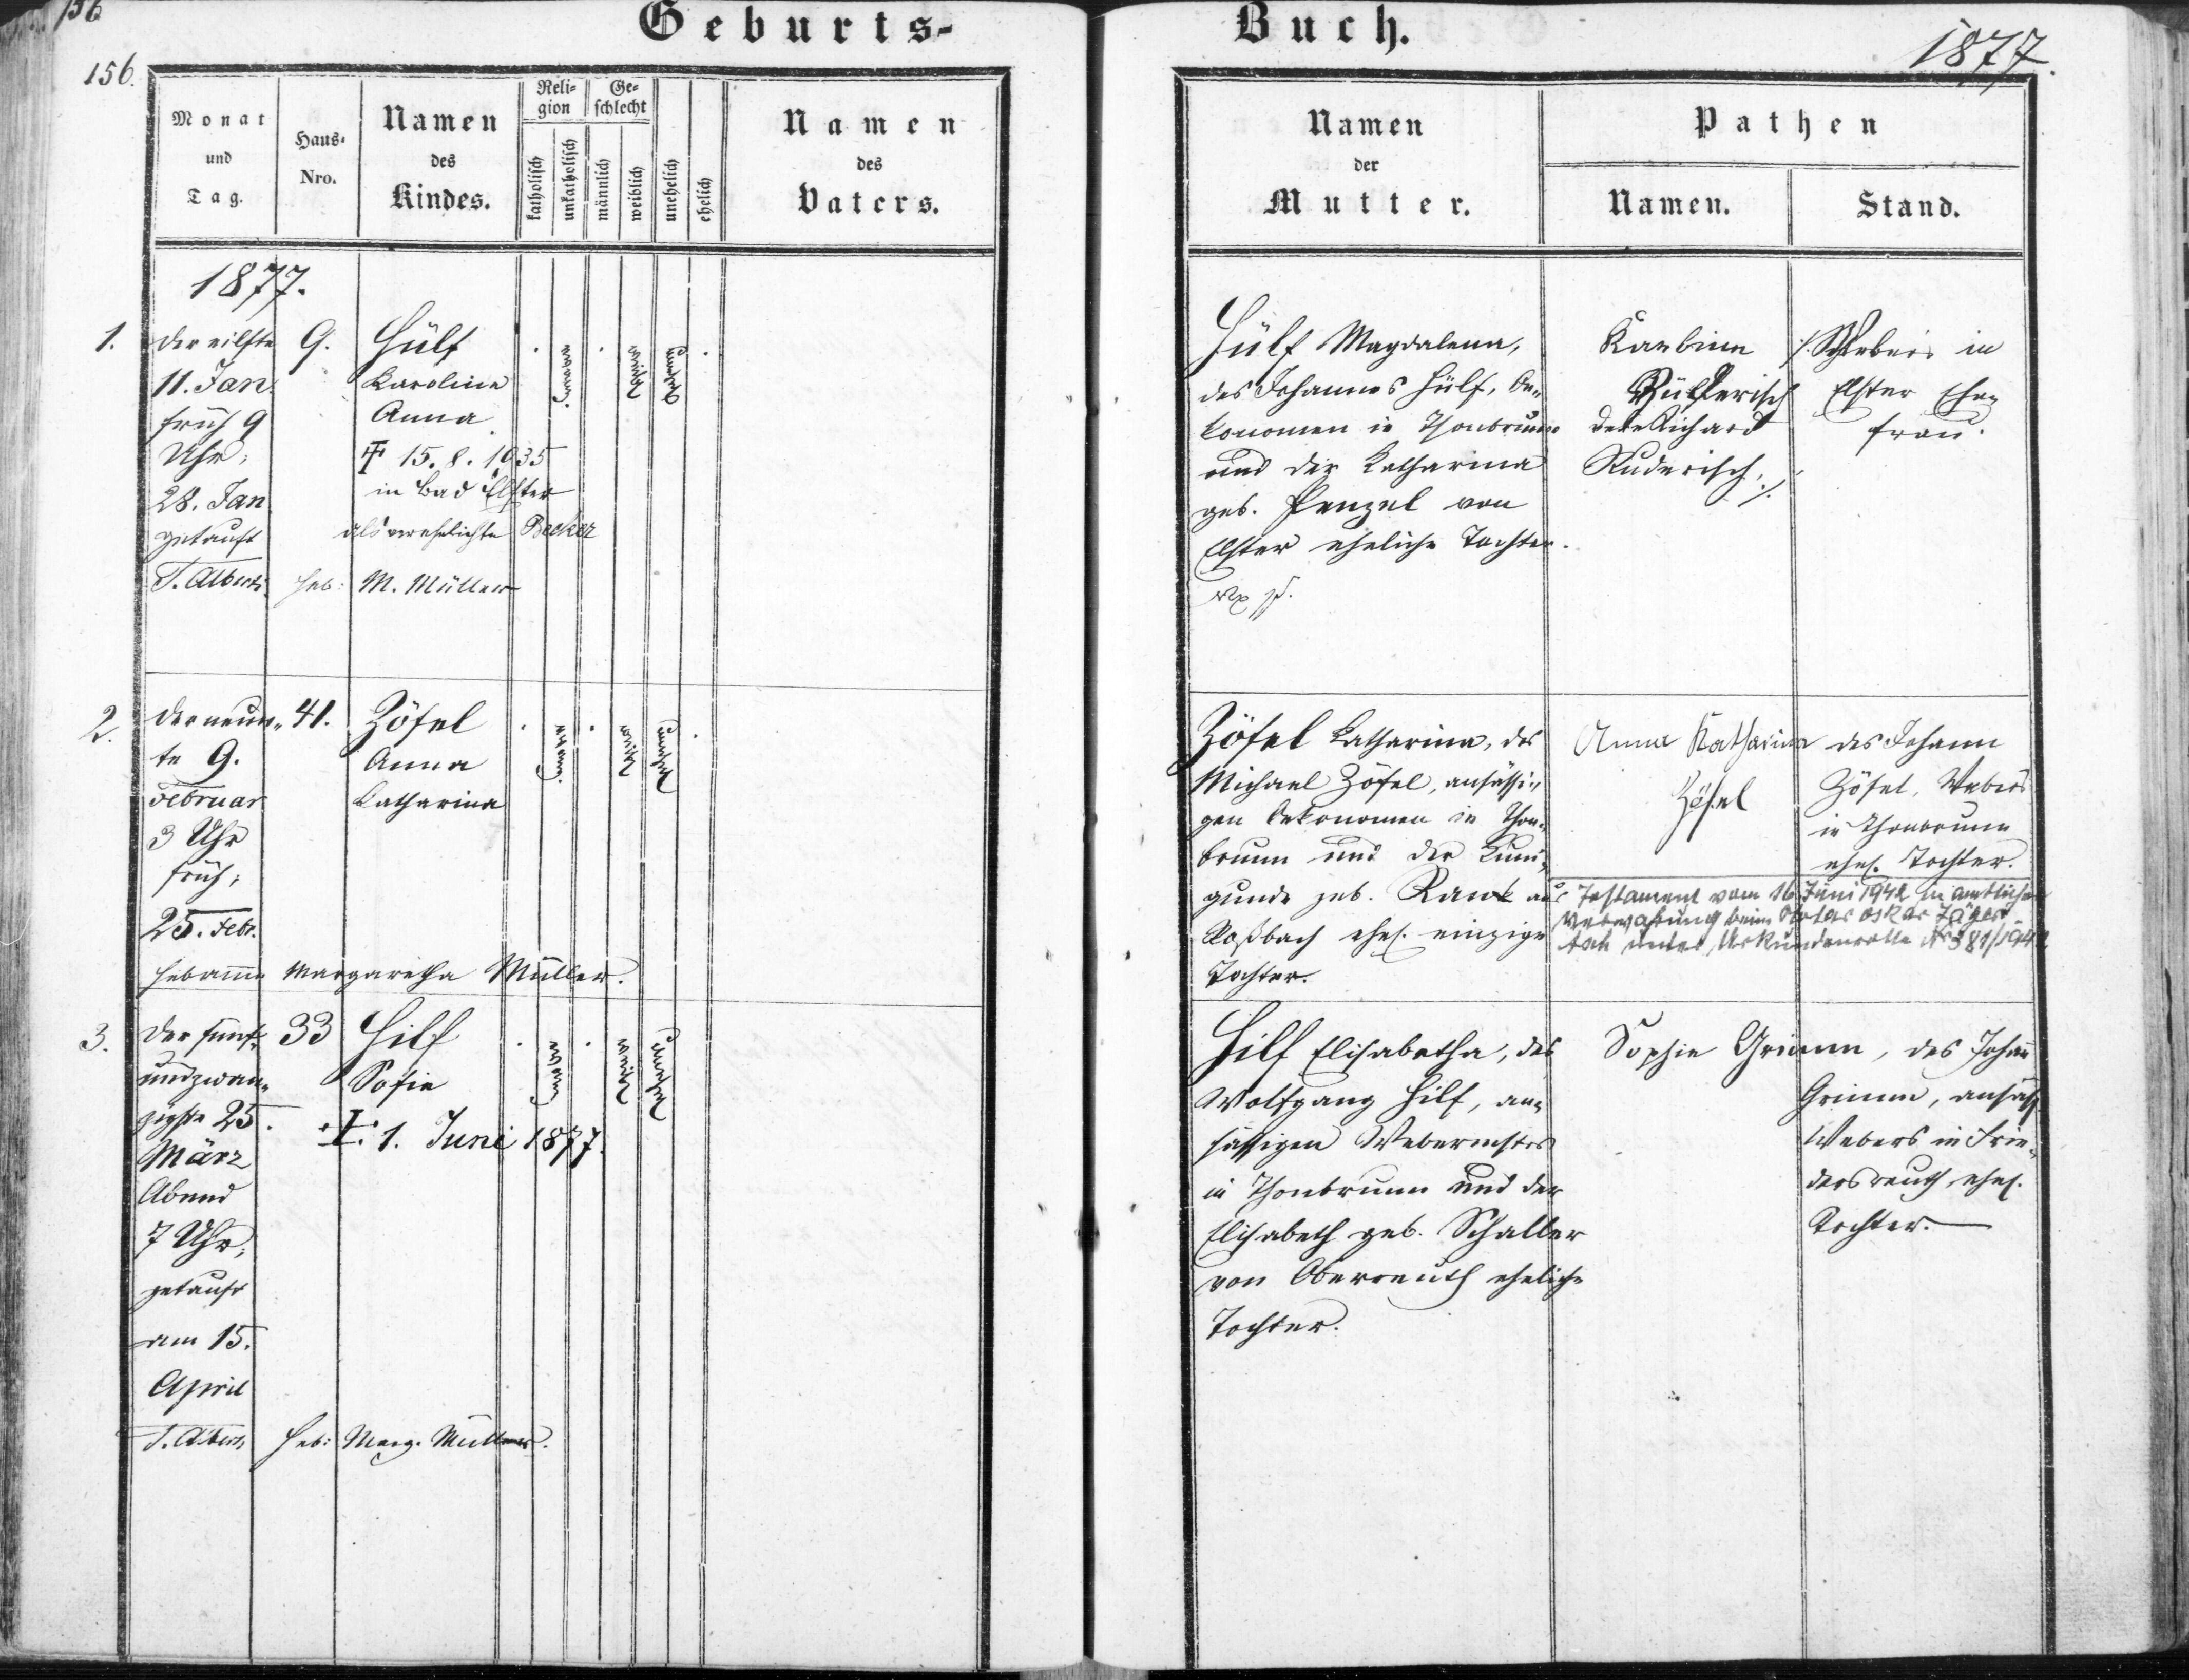 156
Geburts-
156.
Monat
und
Tag.
Haus-
Nro.
Namen
des
Kindes.
Reli-
gion
katholisch
unkatholisch
Ge-
schlecht
männlich
weiblich
unehelich
ehelich
Namen
des
Vaters.
1877.
1.
der eilfte
11. Jan.
früh 9
Uhr;
28. Jan
getauft
T. Alberti
9.
Hülf
Karoline
Anna
† 15.8.1935
in Bad Elster
als verehelichte Becker
Heb: M. Müller
2.
der neun-
te 9.
Februar
3 Uhr
früh;
25. Febr.
41.
Zöfel
Anna
Katharina
Hebamme Margaretha Müller.
3.
der fünf-
undzwan-
zigste 25.
März
Abend
7 Uhr;
getauft
am 15.
April
T. Alberti
33
Hilf
Sofie
†. 1. Juni 1877.
Heb: Marg. Müller.
Buch.
1877.
Namen
der
Mutter.
Pathen
Namen.
Stand.
Hülf Magdalena,
des Johannes Hülf, Oe-
konomen in Thonbrunn
und der Katharina
geb. Penzel von
Elster eheliche Tochter.
Richard
Ruderisch,
./.
Webers in
Elster Ehe-
frau.
Zöfel Katharina, des
Michael Zöfel, ansässi-
gen Oekonomen in Thon-
brunn und der Kuni-
gunde geb. Rank aus
Roßbach ehel. einzige
Tochter.
Anna Katharina
Zöfel
des Johann
Zöfel, Webers
in Thonbrunn
ehel. Tochter.
Testament vom 16. Juni 1942 in amtlicher
Verwahrung beim Notar Oskar Jäger-
Asch unter Urkundenrolle Nr 381/1942
Hilf Elisabetha, des
Wolfgang Hilf, an-
sässigen Webermstrs
in Thonbrunn und der
Elisabeth geb. Schaller
von Oberreuth eheliche
Tochter.
Sophie Grimm, des Johann
Grimm, ansäss
Webers in Frie-
dersreuth, ehel.
Tochter.